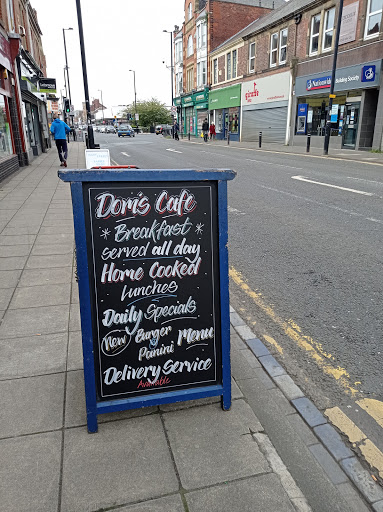 National Building Society
Doris Cafe
* Breakfast *
served all day
Home Cooked
Lunches
Daily Specials
New Burger Menu
Panini
Delivery Service
Available